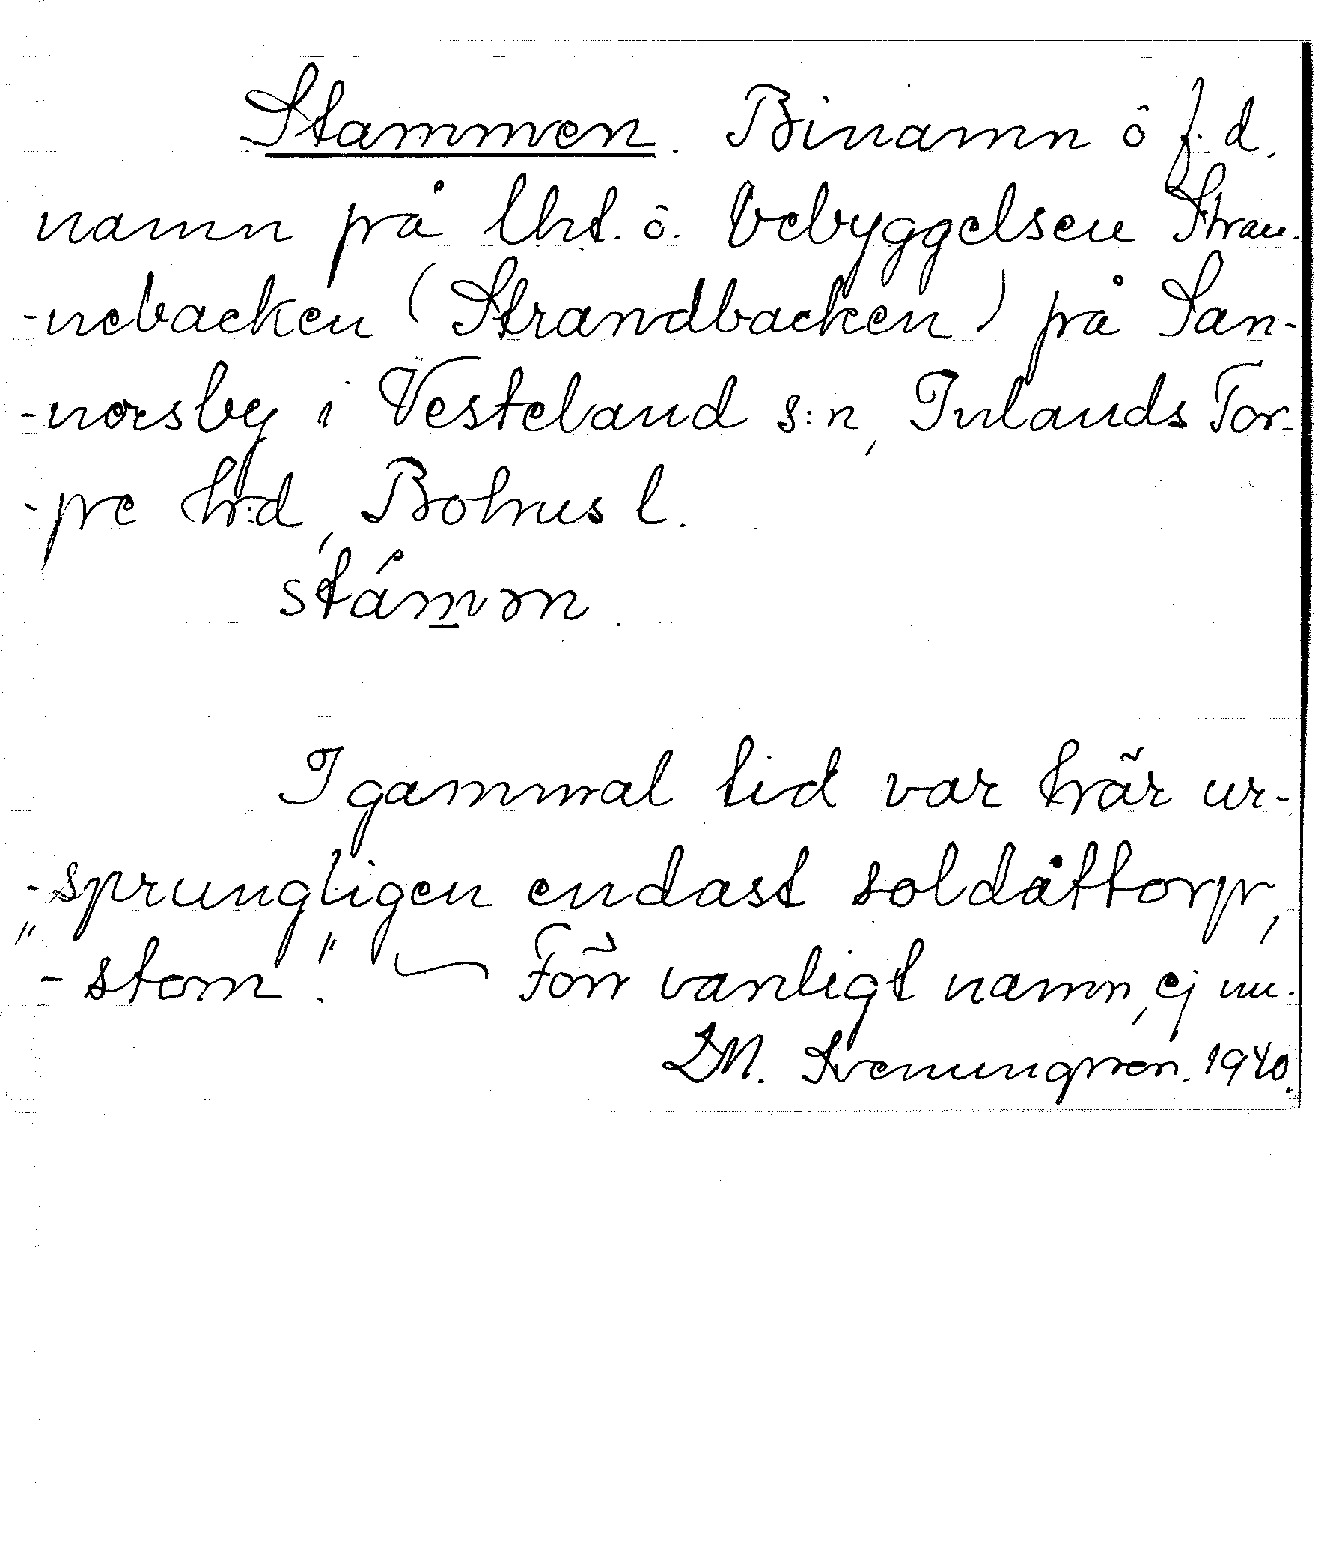 Stammen. Binamn ö f. d.
namn på lht. ö. bebyggelsen Stran-
-nebacken (Strandbacken) på San-
-norsby i Vesteland s:n, Inlands Tor-
-pe h:d, Bohus l.
stámən.
I gammal tid var här ur-
-sprungligen endast soldattorp,
"-stom". Förr vanligt namn, ej nu.
D.N. Svenungsson. 1940.